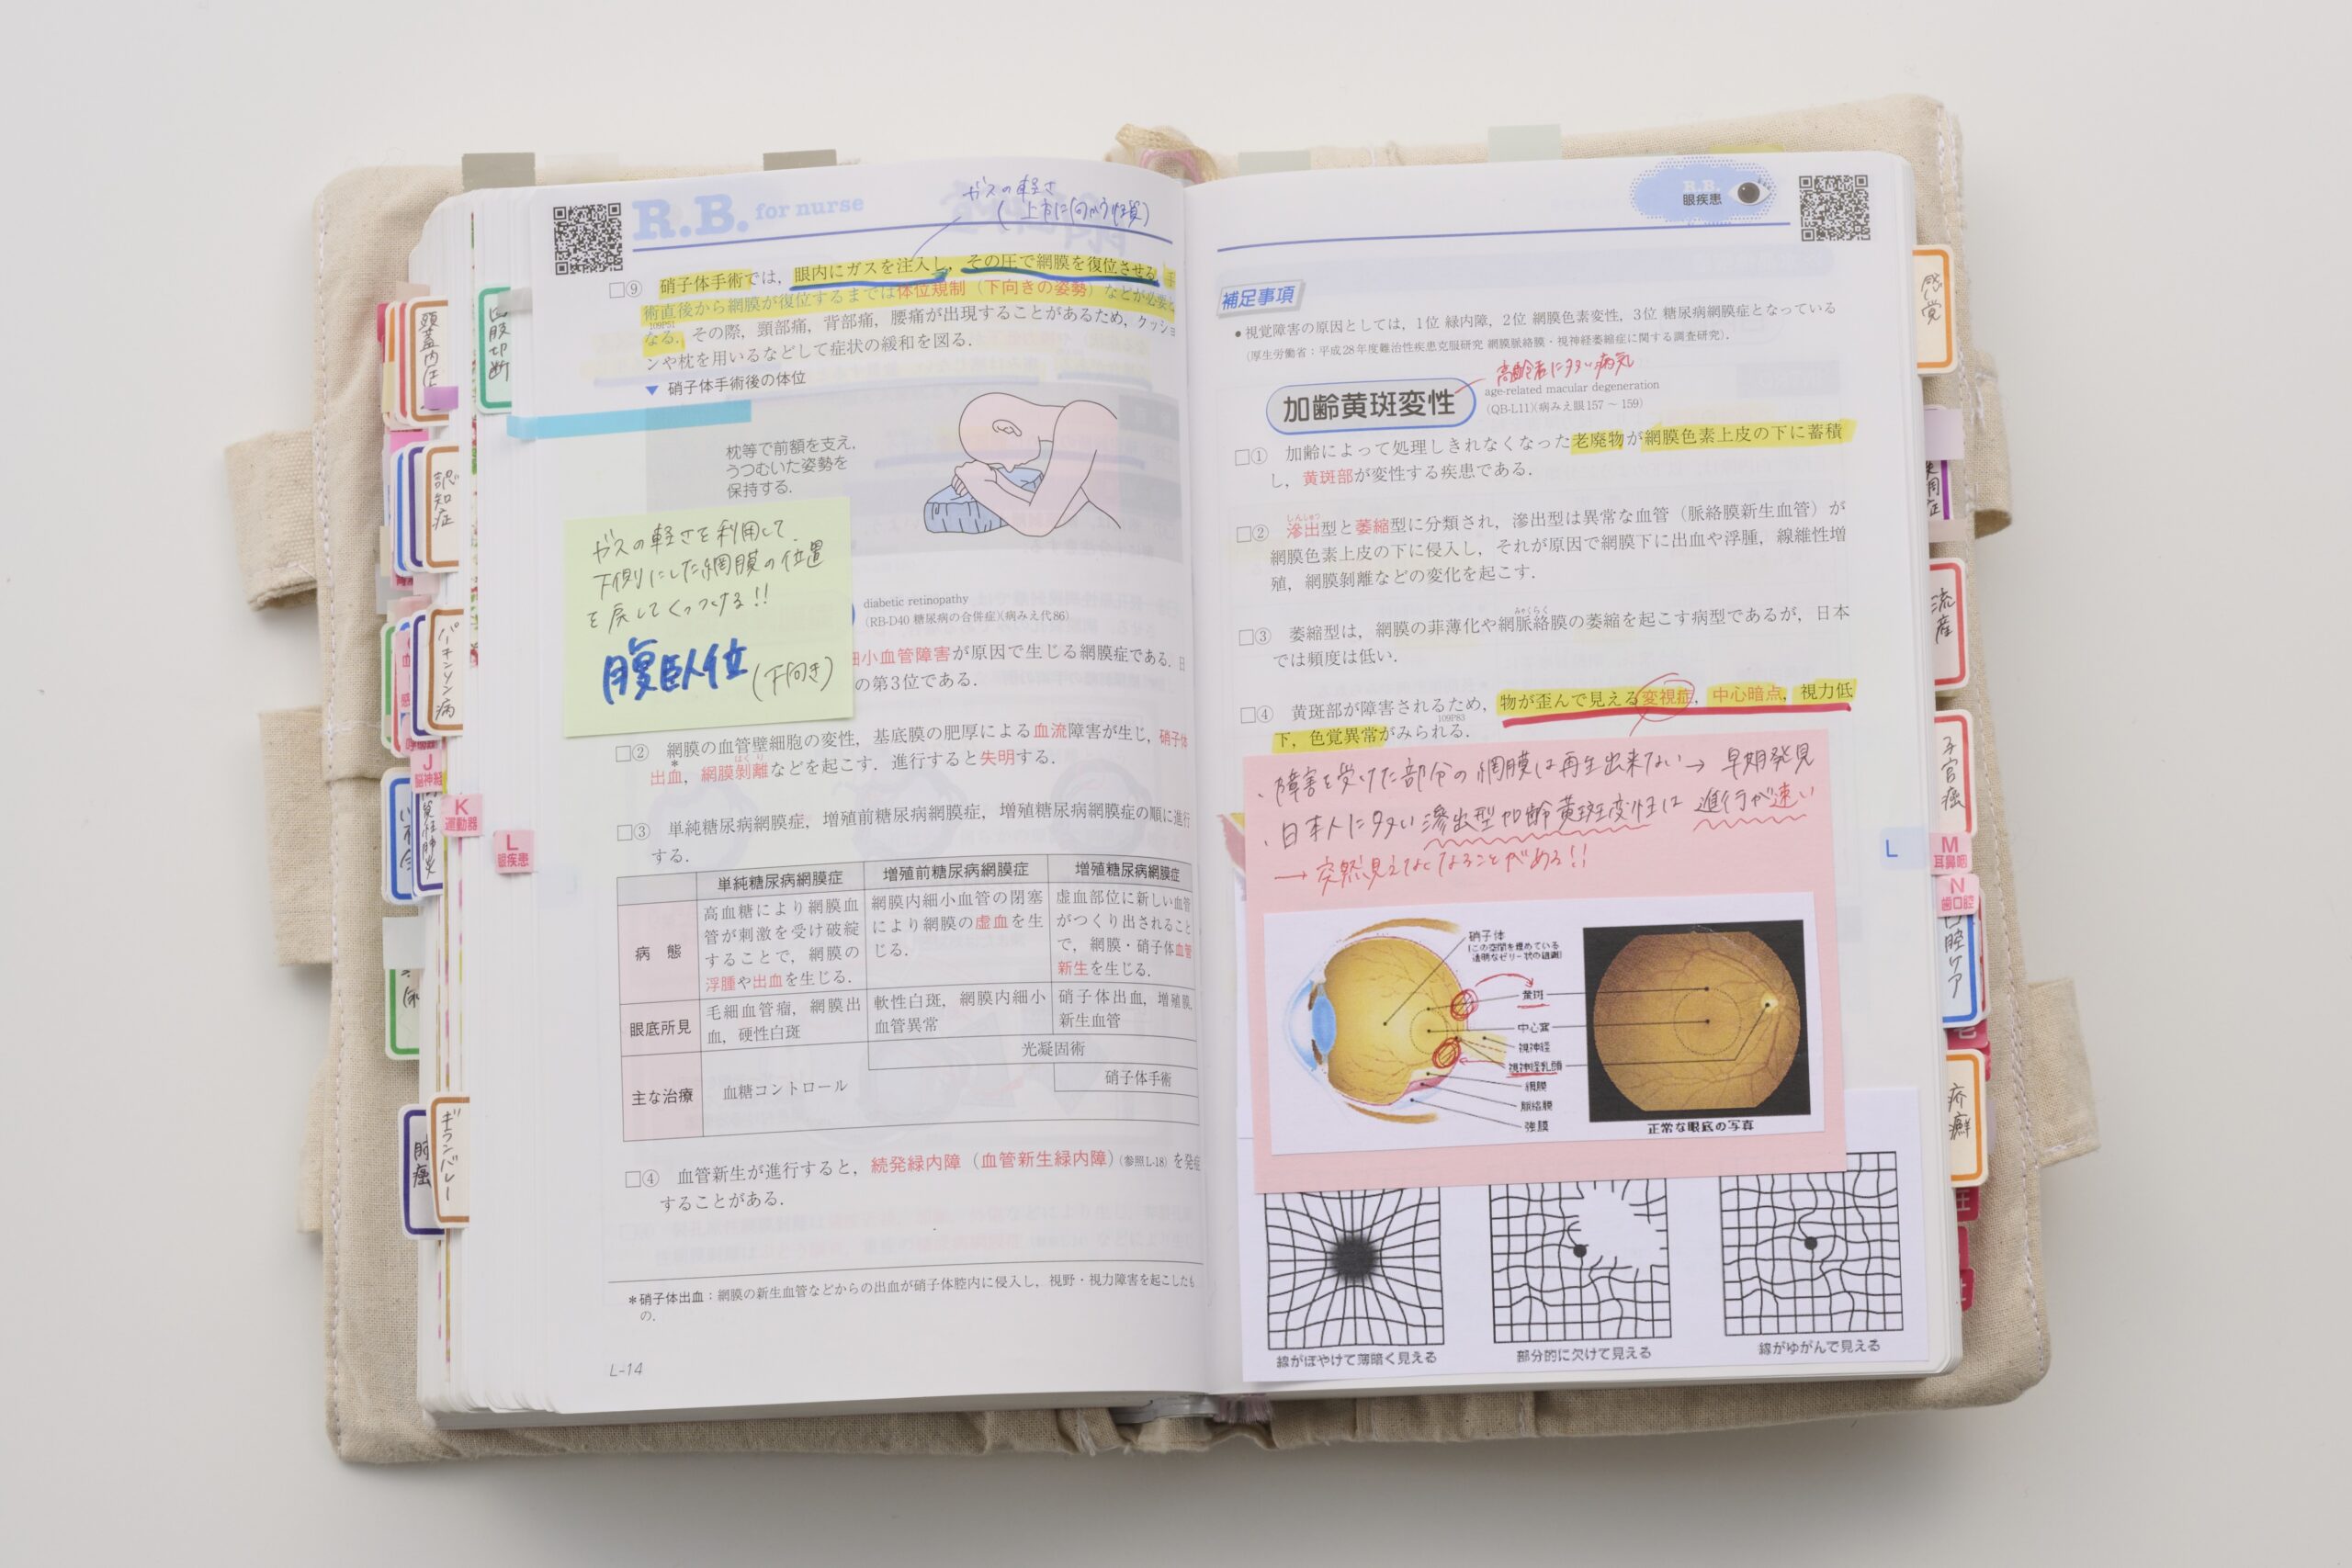 R.B. for nurse
ガスの軽さ
(上方に向かう性質)
□⑨ 硝子体手術では，眼内にガスを注入し，その圧で網膜を復位させる．手
術直後から網膜が復位するまでは体位規制（下向きの姿勢）などが必要と
109P51
なる．その際，頸部痛，背部痛，腰痛が出現することがあるため，クッショ
ンや枕を用いるなどして症状の緩和を図る．
▼ 硝子体手術後の体位
枕等で前額を支え，
うつむいた姿勢を
保持する．
ガスの軽さを利用して
下側にした網膜の位置
を戻してくっつける!!
腹臥位(下向き)
diabetic retinopathy
(RB-D40 糖尿病の合併症)(病みえ代86)
細小血管障害が原因で生じる網膜症である．日
の第3位である．
□② 網膜の血管壁細胞の変性，基底膜の肥厚による血流障害が生じ，硝子体
はくり
出血*，網膜剝離などを起こす．進行すると失明する．
□③ 単純糖尿病網膜症，増殖前糖尿病網膜症，増殖糖尿病網膜症の順に進行
する．
単純糖尿病網膜症 増殖前糖尿病網膜症 増殖糖尿病網膜症
病 態
高血糖により網膜血
管が刺激を受け破綻
することで，網膜の
浮腫や出血を生じる．
網膜内細小血管の閉塞
により網膜の虚血を生
じる．
虚血部位に新しい血管
がつくり出されること
で，網膜・硝子体血管
新生を生じる．
眼底所見
毛細血管瘤，網膜出
血，硬性白斑
軟性白斑，網膜内細小
血管異常
硝子体出血，増殖膜，
新生血管
主な治療
血糖コントロール
光凝固術
硝子体手術
□④ 血管新生が進行すると，続発緑内障（血管新生緑内障）(参照L-18) を発症
することがある．
*硝子体出血：網膜の新生血管などからの出血が硝子体腔内に侵入し，視野・視力障害を起こしたも
の．
L-14
R.B.
眼疾患
補足事項
●視覚障害の原因としては，1位 緑内障，2位 網膜色素変性，3位 糖尿病網膜症となっている
(厚生労働省：平成28年度難治性疾患克服研究 網膜脈絡膜・視神経萎縮症に関する調査研究)．
高齢者に多い病気
加齢黄斑変性
age-related macular degeneration
(QB-L11)(病みえ眼157～159)
□① 加齢によって処理しきれなくなった老廃物が網膜色素上皮の下に蓄積
し，黄斑部が変性する疾患である．
しんしゅつ
□② 滲出型と萎縮型に分類され，滲出型は異常な血管（脈絡膜新生血管）が
網膜色素上皮の下に侵入し，それが原因で網膜下に出血や浮腫，線維性増
殖，網膜剝離などの変化を起こす．
みゃくらく
□③ 萎縮型は，網膜の菲薄化や網脈絡膜の萎縮を起こす病型であるが，日本
では頻度は低い．
□④ 黄斑部が障害されるため，物が歪んで見える変視症，中心暗点，視力低
109P83
下，色覚異常がみられる．
・障害を受けた部分の網膜は再生出来ない→ 早期発見
・日本人に多い滲出型加齢黄斑変性は 進行が速い
→ 突然見えなくなることがある!!
硝子体
(この空間を埋めている
透明なゼリー状の組織)
黄斑
中心窩
視神経
視神経乳頭
網膜
脈絡膜
強膜
正常な眼底の写真
線がぼやけて薄暗く見える
部分的に欠けて見える
線がゆがんで見える
四肢切断
頭蓋内圧
認知症
パーキンソン病
J
脳神経
K
運動器
L
眼疾患
肺癌
ギランバレー
感覚
流産
子宮癌
L
M
耳鼻咽
N
歯口腔
口腔ケア
疥癬